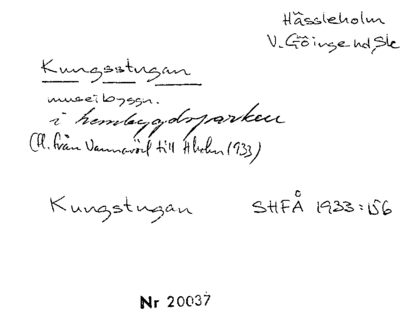 Hässleholm
V. Göinge hd, Sk
Kungsstugan
museibyggn.
i hembygdsparken
(fl. från Vannaröd till Hholm 1933)
Kungstugan SHFÅ 1933:156
Nr 20037